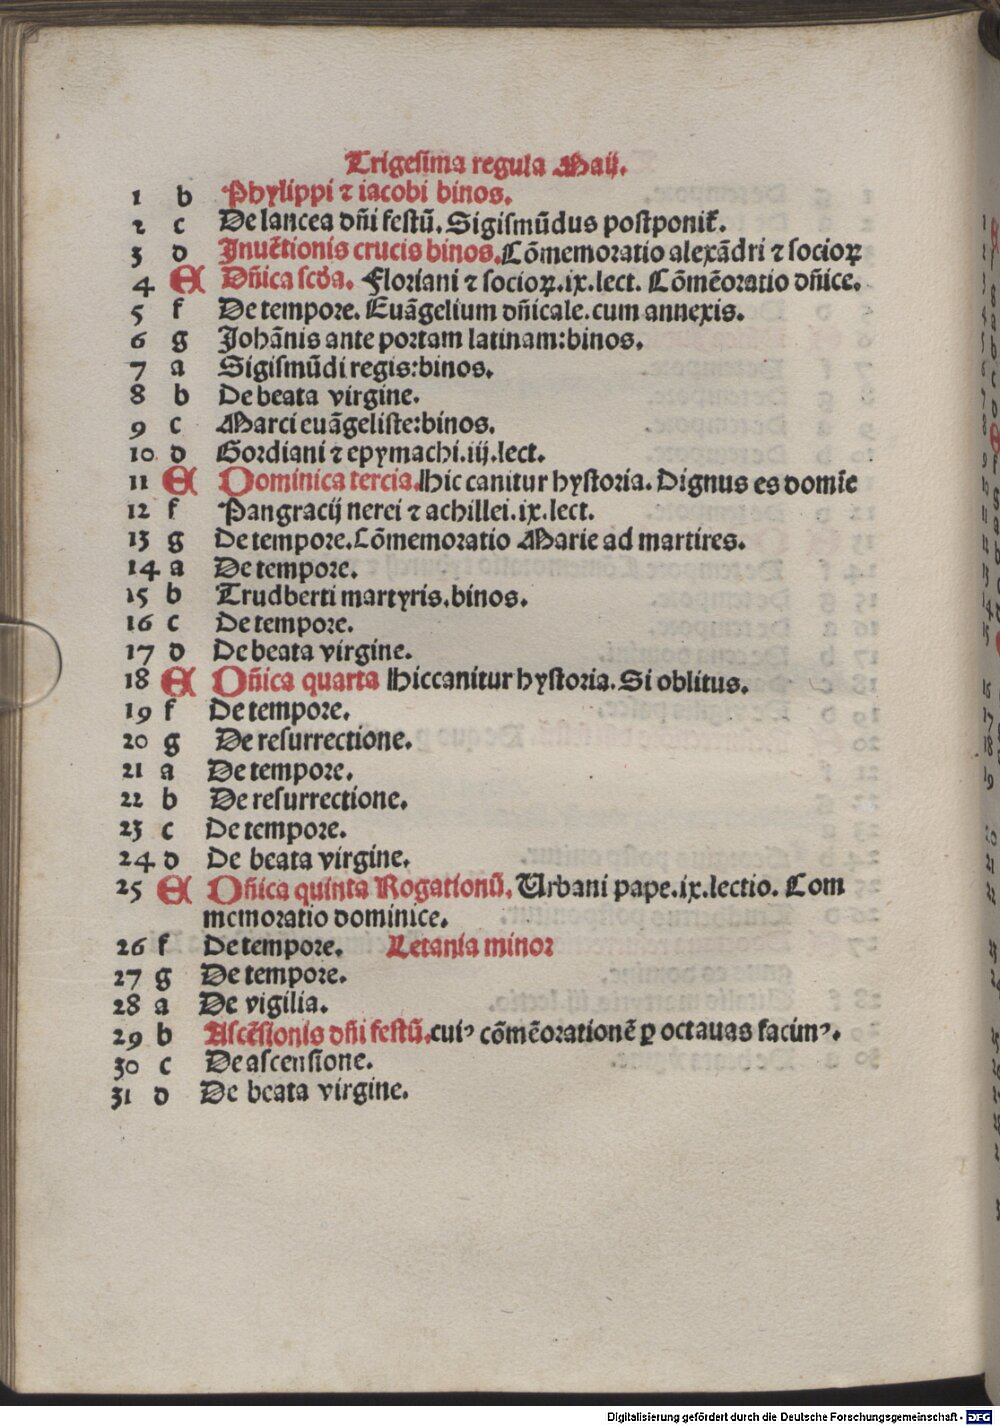 Trigesima regula Maij.
1 b Phylippi ⁊ iacobi binos.
2 c De lancea dñi festũ. Sigismũdus postponit̃.
3 d Inuẽtionis crucis binos. Cõmemoratio alexãdri ⁊ socioꝝ
4 E Dñica scďa. Floriani ⁊ socioꝝ.ix.lect. Cõmẽoratio dñice.
5 f De tempore. Euãgelium dñicale.cum annexis.
6 g Johãnis ante portam latinam:binos.
7 a Sigismũdi regis:binos.
8 b De beata virgine.
9 c Marci euãgeliste:binos.
10 d Gordiani ⁊ epymachi.iij.lect.
11 E Dominica tercia. Hic canitur hystoria. Dignus es domĩe
12 f Pangracij nerei ⁊ achillei.ix.lect.
13 g De tempore. Cõmemoratio Marie ad martires.
14 a De tempore.
15 b Trudberti martyris.binos.
16 c De tempore.
17 d De beata virgine.
18 E Dñica quarta Hiccanitur hystoria. Si oblitus.
19 f De tempore.
20 g De resurrectione.
21 a De tempore.
22 b De resurrectione.
23 c De tempore.
24 d De beata virgine.
25 E Dñica quinta Rogationũ. Urbani pape.ix.lectio. Com
memoratio dominice.
26 f De tempore. Letania minor
27 g De tempore.
28 a De vigilia.
29 b Ascẽsionis dñi festũ.cuiꝰ cõmẽorationẽ ꝑ octauas facimꝰ.
30 c De ascensione.
31 d De beata virgine.
Digitalisierung gefördert durch die Deutsche Forschungsgemeinschaft - DFG